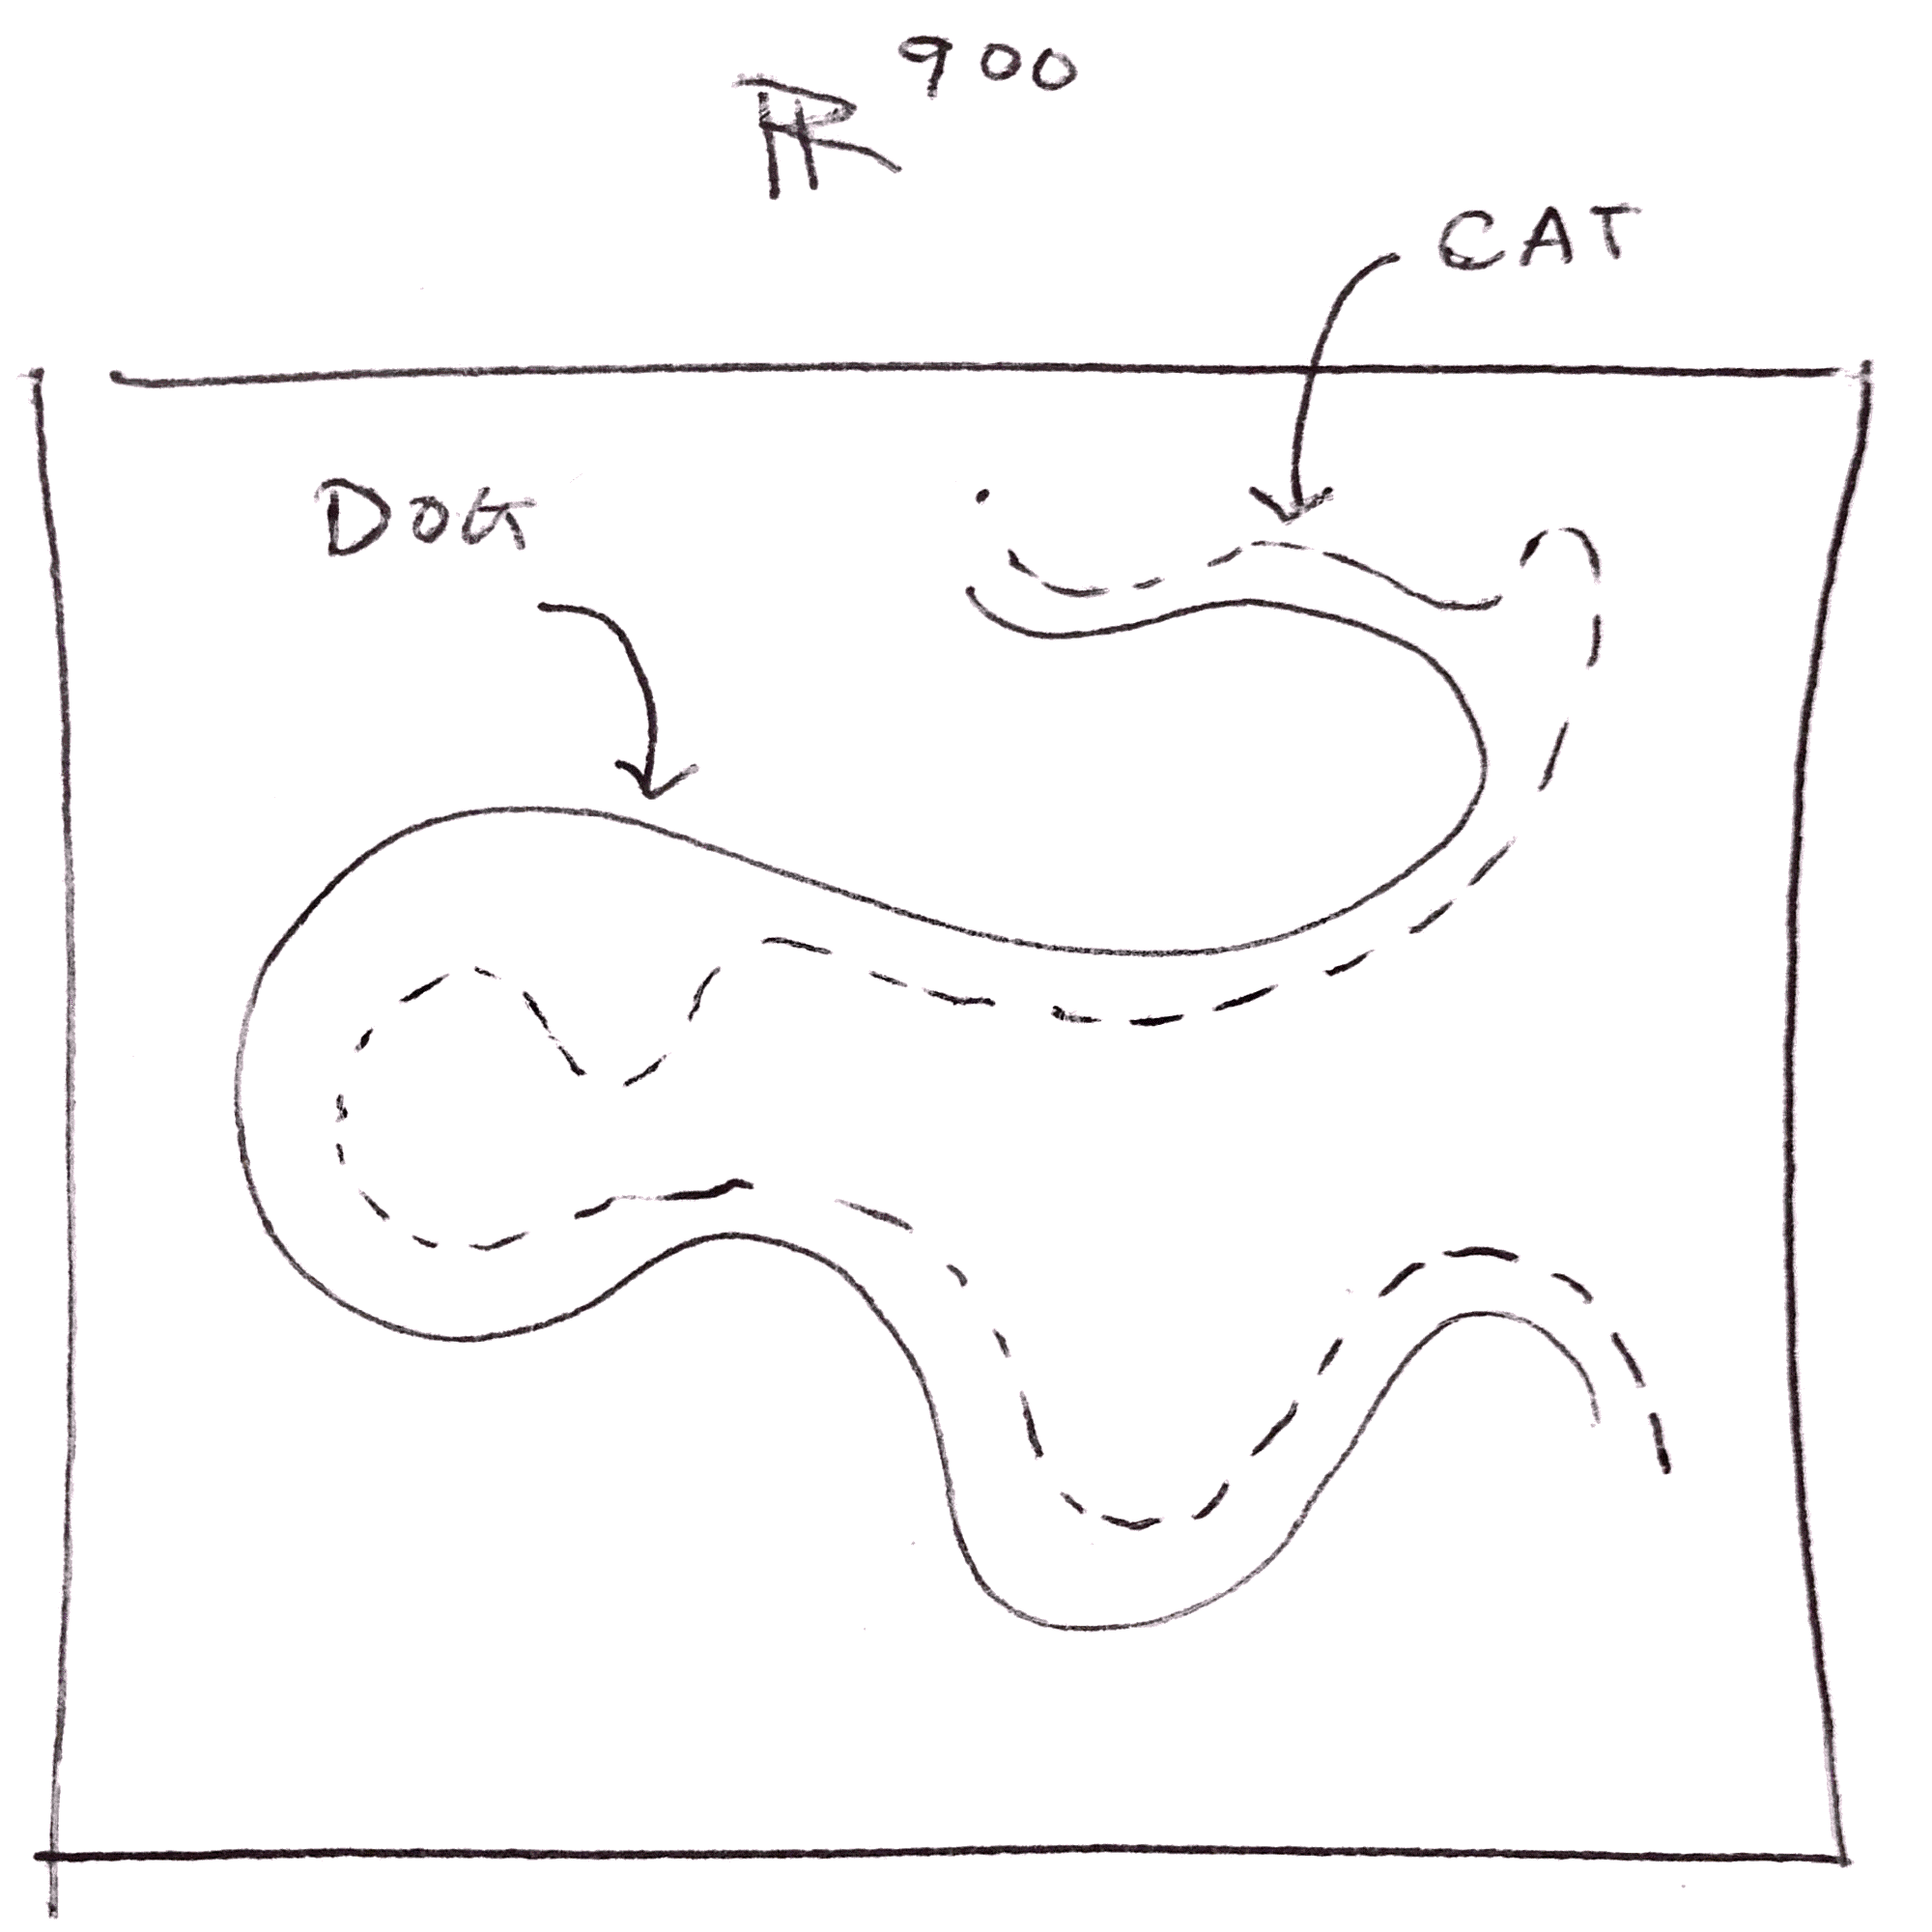 ℝ⁹⁰⁰
CAT
DOG